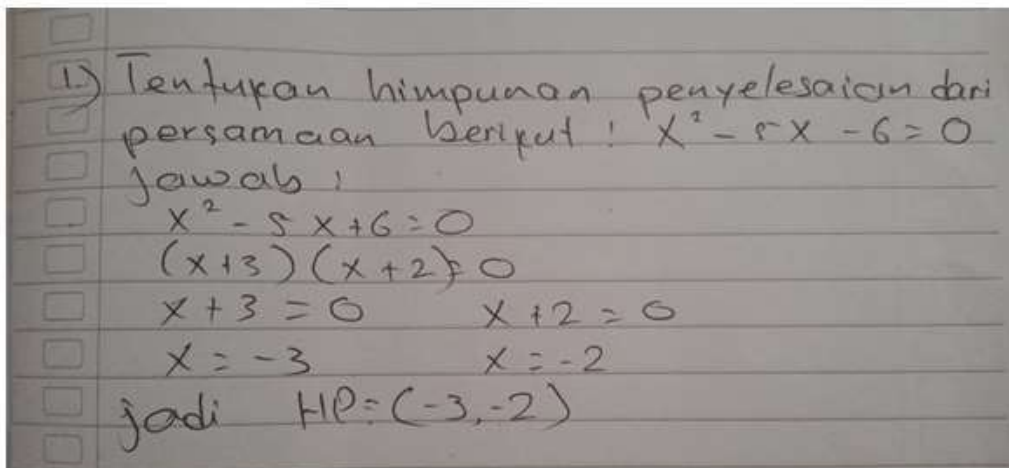 1.) Tentukan himpunan penyelesaian dari
persamaan berikut : x² - 5x - 6 = 0
jawab :
x² - 5x + 6 = 0
(x+3) (x+2) = 0
x + 3 = 0 x + 2 = 0
x = -3 x = -2
jadi HP = (-3, -2)